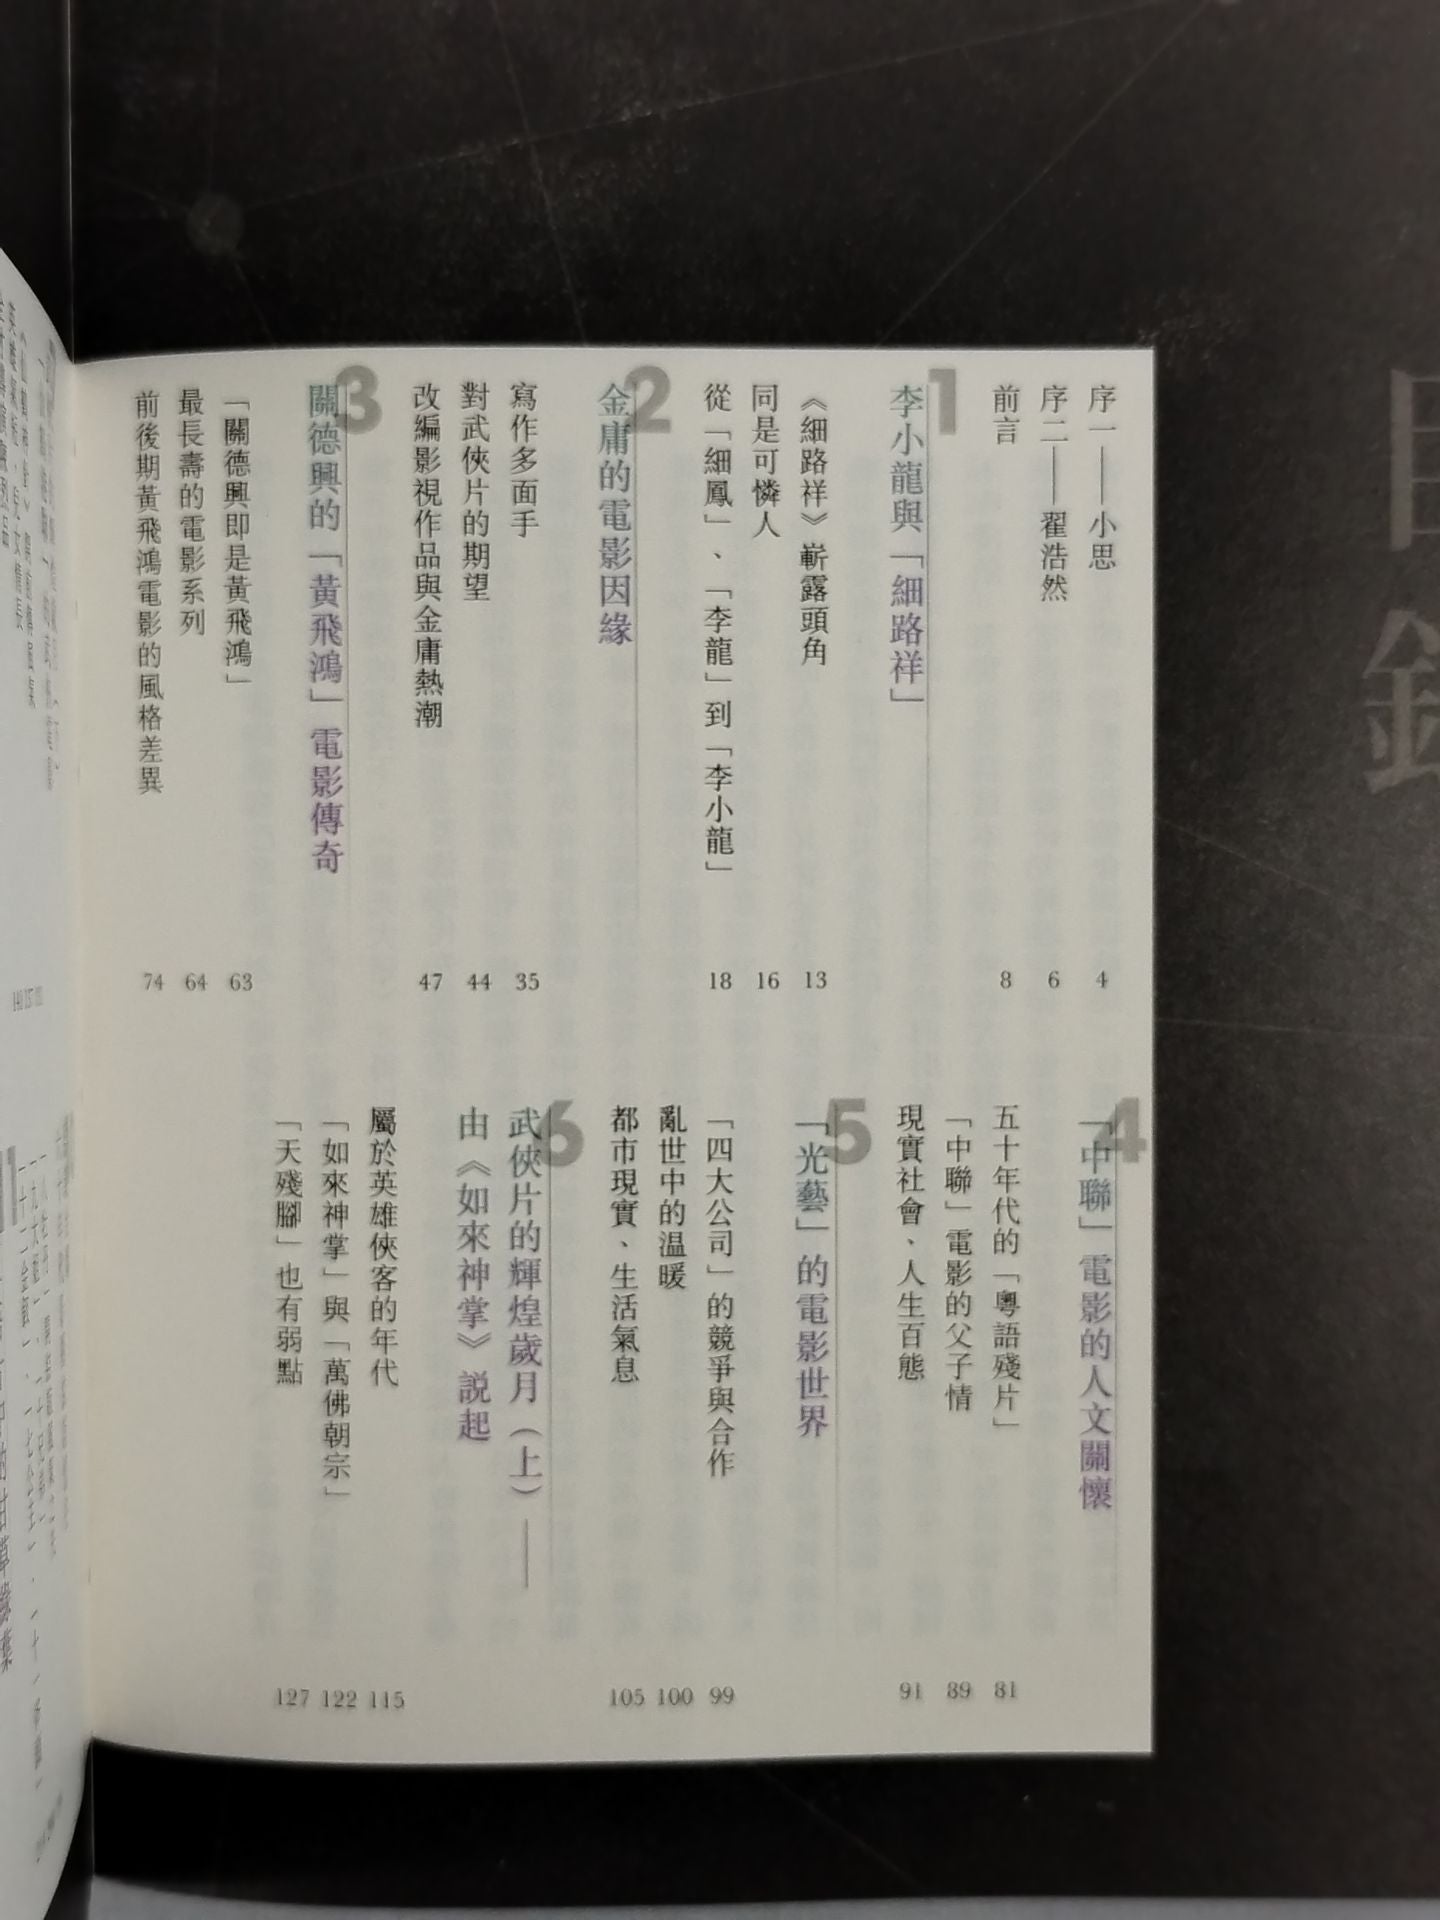 目錄
序一——小思
4
序二——翟浩然
6
前言
8
1
李小龍與「細路祥」
《細路祥》嶄露頭角
13
同是可憐人
16
從「細鳳」、「李龍」到「李小龍」
18
2
金庸的電影因緣
寫作多面手
35
對武俠片的期望
44
改編影視作品與金庸熱潮
47
3
關德興的「黃飛鴻」電影傳奇
「關德興即是黃飛鴻」
63
最長壽的電影系列
64
前後期黃飛鴻電影的風格差異
74
4
「中聯」電影的人文關懷
五十年代的「粵語殘片」
81
「中聯」電影的父子情
89
現實社會、人生百態
91
5
「光藝」的電影世界
「四大公司」的競爭與合作
99
亂世中的温暖
100
都市現實、生活氣息
105
6
武俠片的輝煌歲月（上）——
由《如來神掌》説起
屬於英雄俠客的年代
115
「如來神掌」與「萬佛朝宗」
122
「天殘腳」也有弱點
127